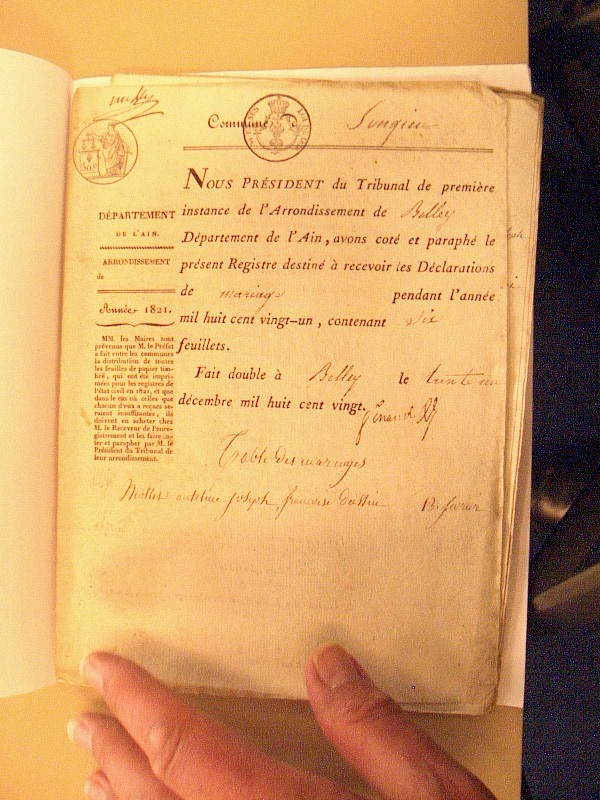 Commune Songieu
NOUS PRÉSIDENT du Tribunal de première
instance de l'Arrondissement de Belley
Département de l'Ain, avons coté et paraphé le
présent Registre destiné à recevoir les Déclarations
de mariage pendant l'année
mil huit cent vingt-un, contenant six
feuillets.
Fait double à Belley le trente un
décembre mil huit cent vingt.
DÉPARTEMENT
DE L'AIN.
ARRONDISSEMENT
de
Année 1821.
MM. les Maires sont
prévenus que M. le Préfet
a fait entre les communes
la distribution de toutes
les feuilles de papier tim-
bré, qui ont été impri-
mées pour les registres de
l'état civil en 1821, et que
dans le cas où celles que
chacun d'eux a reçues se-
raient insuffisantes, ils
doivent en acheter chez
M. le Receveur de l'enre-
gistrement et les faire co-
ter et parapher par M. le
Président du Tribunal de
leur arrondissement.
Table des mariages
Mollet anthelme joseph, françoise 13 fevrier